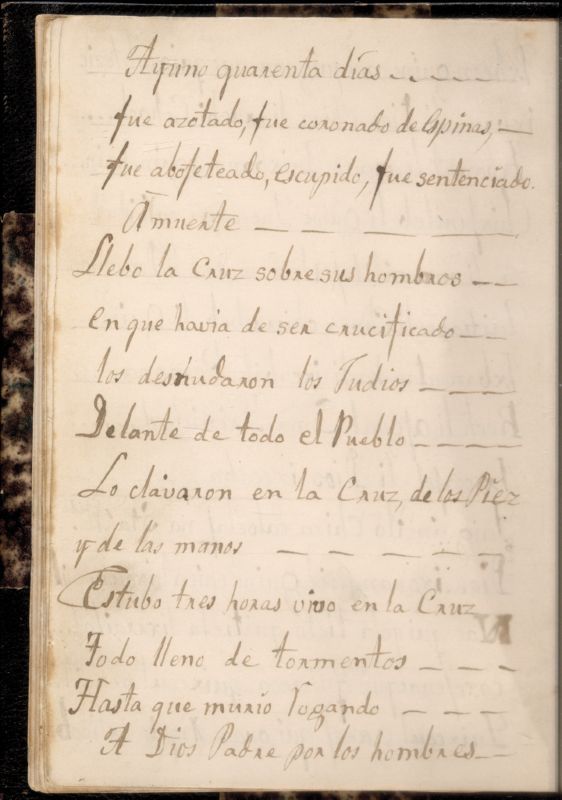 Ayuno quarenta días
fue azotado, fue coronado de Espinas,
fue abofeteado, escupido, fue sentenciado.
A muerte
Llebo la Cruz sobre sus hombros
en que havia de ser crucificado
los desnudaron los Judios
Delante de todo el Pueblo
Lo clavaron en la Cruz, de los Piez
y de las manos
Estubo tres horas vivo en la Cruz
Todo lleno de tormentos
Hasta que murió rogando
A Dios Padre por los hombres